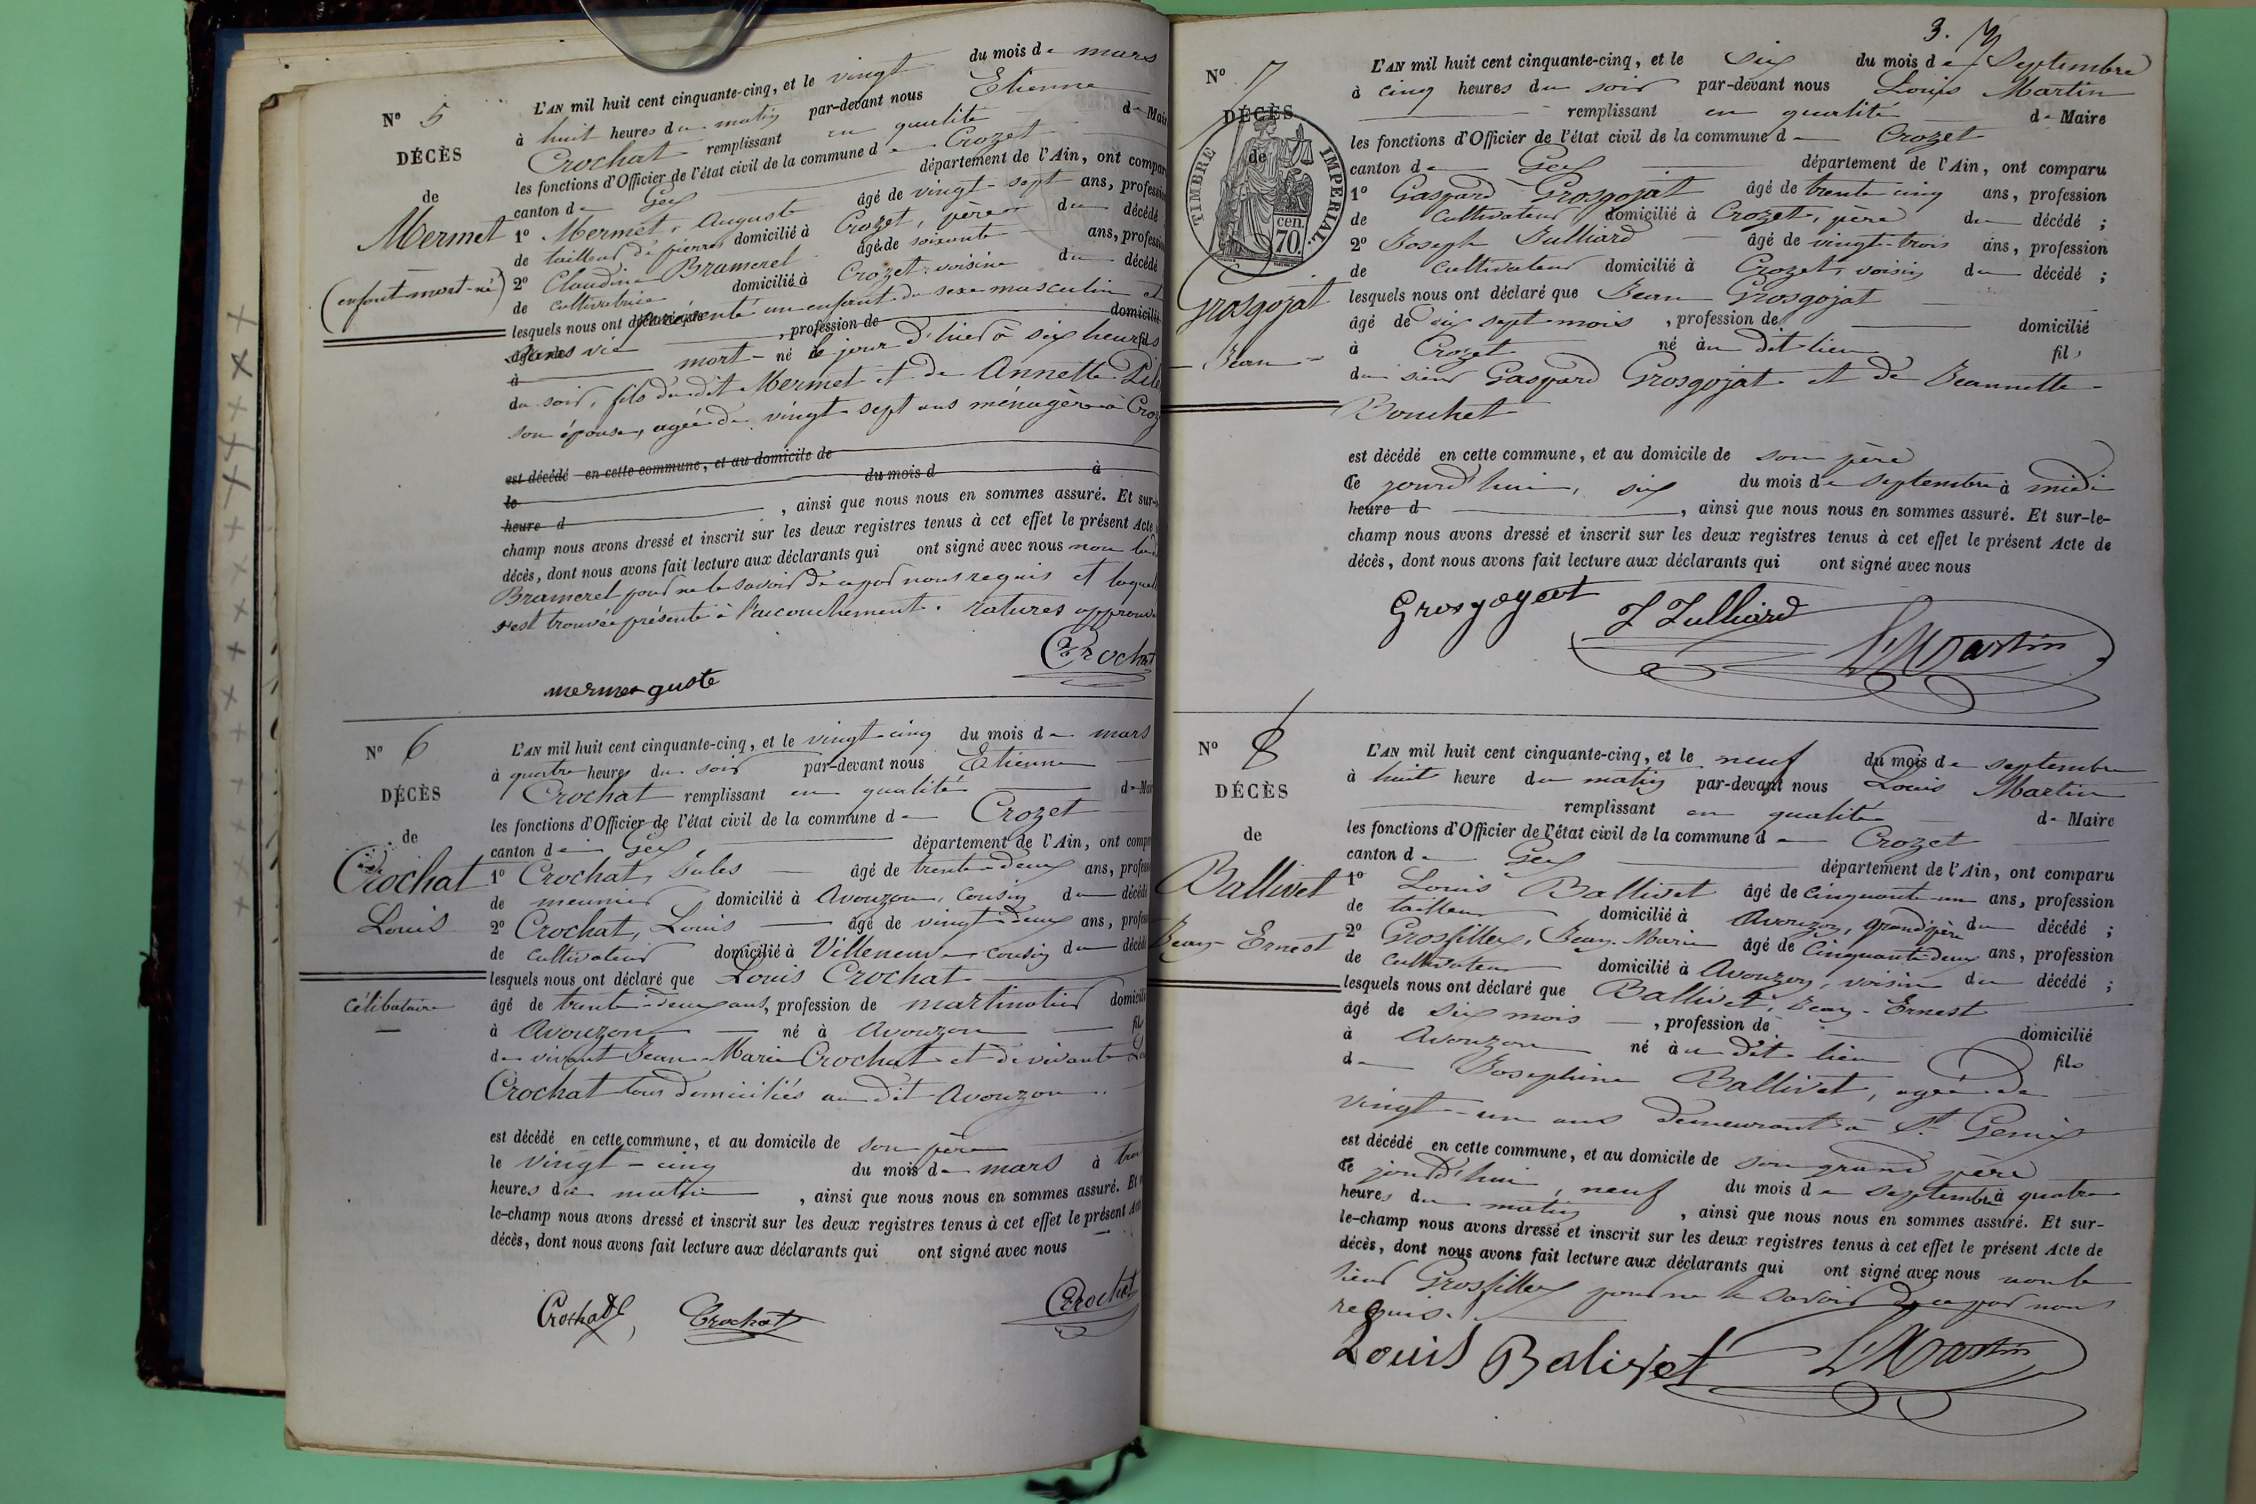 N° 5
DÉCÈS
de
Mermet
(enfant mort-né)
L'AN mil huit cent cinquante-cinq, et le vingt du mois de mars
à huit heures du matin par-devant nous Etienne
Crochat remplissant en qualité de Mair
les fonctions d'Officier de l'état civil de la commune de Crozet
canton de Gex département de l'Ain, ont compar
1° Mermet, Auguste âgé de vingt-sept ans, profession
de tailleur de pierres domicilié à Crozet, père du décédé
2° Claudine Brameret âgé de soixante ans, profession
de cultivatrice domicilié à Crozet, voisine du décédé
lesquels nous ont présenté un enfant du sexe masculin et
sans vie , profession de domicilié
à mort-né le jour d'hier à six heures
du soir, fils du dit Mermet et de Annette
son épouse, agée de vingt sept ans ménagère à Croz
est décédé en cette commune, et au domicile de
le du mois d à
heure d , ainsi que nous nous en sommes assuré. Et sur-
champ nous avons dressé et inscrit sur les deux registres tenus à cet effet le présent Acte
décès, dont nous avons fait lecture aux déclarants qui ont signé avec nous non la
Brameret pour ne le savoir de ce par nous requis et laquelle
s'est trouvée présente à l'accouchement. ratures approuvé
Crochat
mermet guste
N° 6
DÉCÈS
de
Crochat
Louis
célibataire
L'AN mil huit cent cinquante-cinq, et le vingt-cinq du mois de mars
à quatre heures du soir par-devant nous Etienne
Crochat remplissant en qualité de Mai
les fonctions d'Officier de l'état civil de la commune de Crozet
canton de Gex département de l'Ain, ont comp
1° Crochat, Jules âgé de trente-deux ans, profess
de meunier domicilié à Avouzon, cousin du décédé
2° Crochat, Louis âgé de vingt-deux ans, profess
de cultivateur domicilié à Villeneuve cousin du décédé
lesquels nous ont déclaré que Louis Crochat
âgé de trente-deux ans, profession de martinetier domicilié
à Avouzon né à Avouzon fils
de vivant Jean-Marie Crochat et de vivante
Crochat tous domiciliés au dit Avouzon.
est décédé en cette commune, et au domicile de son père
le vingt-cinq du mois de mars à
heures du matin , ainsi que nous nous en sommes assuré. Et
le-champ nous avons dressé et inscrit sur les deux registres tenus à cet effet le présent Acte
décès, dont nous avons fait lecture aux déclarants qui ont signé avec nous
Crochat Crochat Crochat
3.
N° 7
DÉCÈS
de
TIMBRE IMPÉRIAL.
70 cen.
Grosgojat
Jean
L'AN mil huit cent cinquante-cinq, et le six du mois de Septembre
à cinq heures du soir par-devant nous Louis Martin
remplissant en qualité de Maire
les fonctions d'Officier de l'état civil de la commune de Crozet
canton de Gex département de l'Ain, ont comparu
1° Gaspard Grosgojat âgé de trente cinq ans, profession
de cultivateur domicilié à Crozet, père du décédé ;
2° Joseph Julliard âgé de vingt-trois ans, profession
de cultivateur domicilié à Crozet, voisin du décédé ;
lesquels nous ont déclaré que Jean Grosgojat
âgé de dix sept mois , profession de domicilié
à Crozet né au dit lieu fils
du sieur Gaspard Grosgojat et de Jeannette
Bouchet
est décédé en cette commune, et au domicile de son père
ce jourd'hui, six du mois de septembre à midi
heure d , ainsi que nous nous en sommes assuré. Et sur-le-
champ nous avons dressé et inscrit sur les deux registres tenus à cet effet le présent Acte de
décès, dont nous avons fait lecture aux déclarants qui ont signé avec nous
Grosgogeat J Julliard L Martin
N° 8
DÉCÈS
de
Ballivet
Jean-Ernest
L'AN mil huit cent cinquante-cinq, et le neuf du mois de septembre
à huit heure du matin par-devant nous Louis Martin
remplissant en qualité de Maire
les fonctions d'Officier de l'état civil de la commune de Crozet
canton de Gex département de l'Ain, ont comparu
1° Louis Ballivet âgé de cinquante-un ans, profession
de tailleur domicilié à Avouzon, grand père du décédé ;
2° Grosfilley, Jean-Marie âgé de Cinquante-deux ans, profession
de cultivateur domicilié à Avouzon, voisin du décédé ;
lesquels nous ont déclaré que Ballivet, Jean-Ernest
âgé de six mois , profession de domicilié
à Avouzon né au dit lieu fils
de Josephine Ballivet, agée de
vingt-un ans demeurant à St Genix
est décédé en cette commune, et au domicile de son grand père
ce jourd'hui, neuf du mois de septembre à quatre
heures du matin , ainsi que nous nous en sommes assuré. Et sur-
le-champ nous avons dressé et inscrit sur les deux registres tenus à cet effet le présent Acte de
décès, dont nous avons fait lecture aux déclarants qui ont signé avec nous non le
sieur Grosfilley pour ne le savoir de ce par nous
requis.
Louis Balivet L Martin